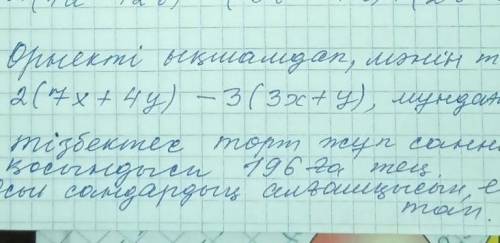 Өрнекті ықшамдап, мәнін т
2(7x+4y) - 3(3x+y), мұндағ
тізбектес төрт жұп санн
қосындысы 196 ға тең.
сы сандардың алғашқысын, е
тап.